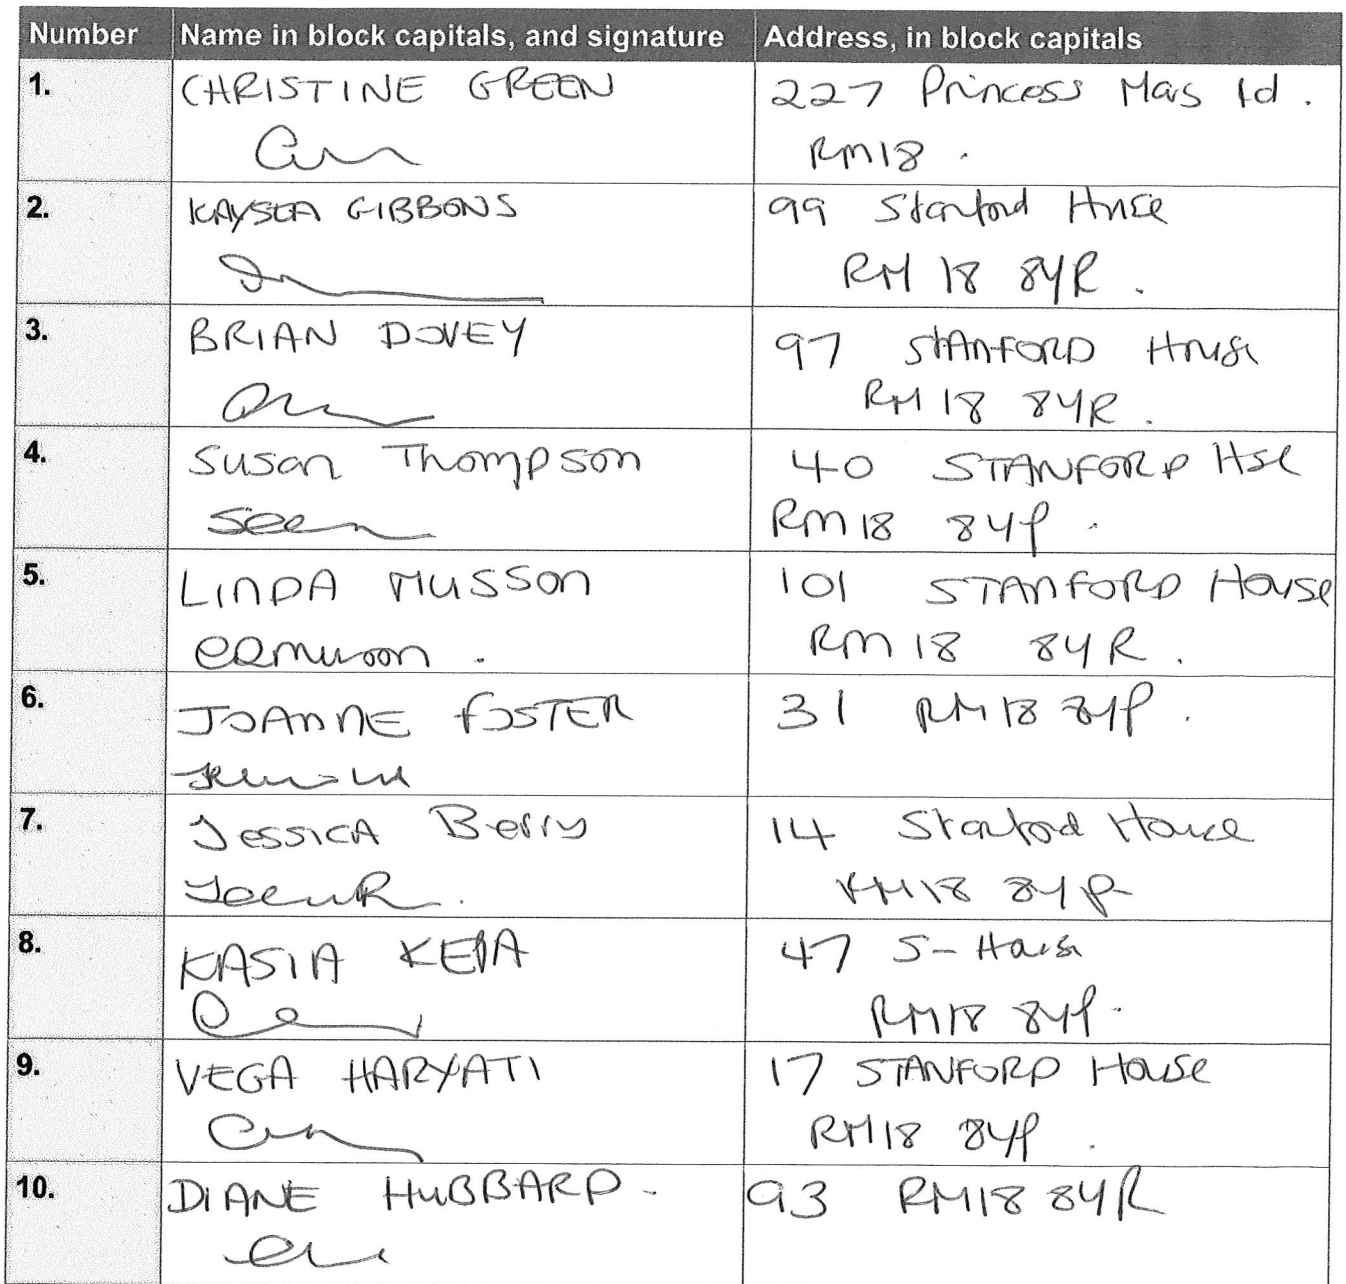 Number Name in block capitals, and signature Address, in block capitals
1. CHRISTINE GREEN 227 Princess Mars rd.
RM18.
2. KAYSEA GIBBONS 99 Stanford House
RM 18 8YR.
3. BRIAN DOVEY 97 STANFORD House
RM 18 8YR.
4. Susan Thompson 40 STANFORD Hse
RM 18 8YP.
5. LINDA MUSSON 101 STANFORD House
RM 18 8YR.
6. JOANNE FOSTER 31 RM18 8YP.
7. Jessica Berry 14 Stanford House
RM18 8YP
8. KASIA KEIA 47 S-House
RM18 8YP.
9. VEGA HARYATI 17 STANFORD House
RM18 8YP.
10. DIANE HUBBARD. 93 RM18 8YR